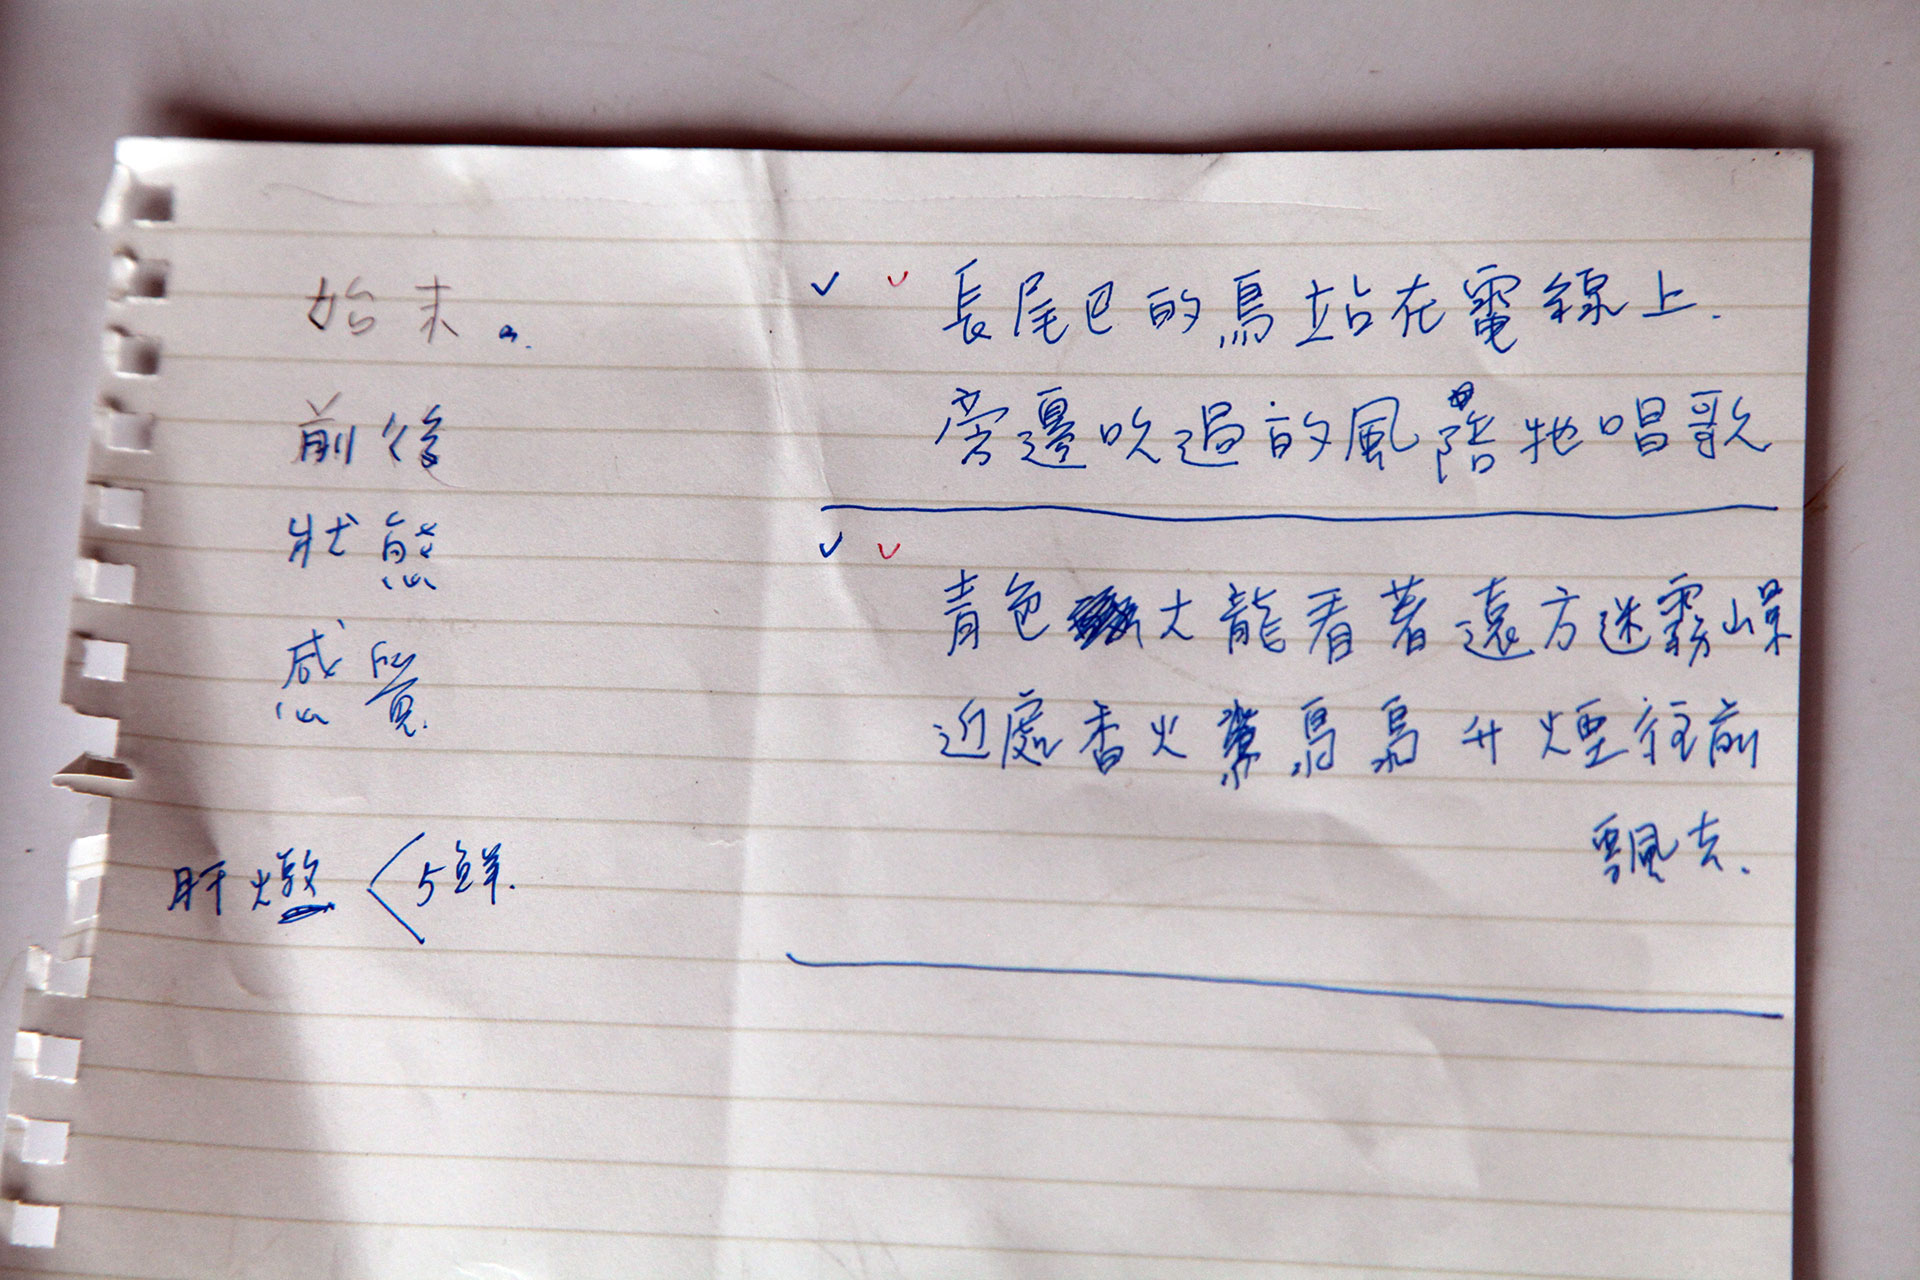 始末。
前後
狀態
感覺.
肝燉 < 5鮮.
長尾巴的鳥站在電線上.
旁邊吹過的風陪牠唱歌
青色大龍看著遠方迷霧
近處香火裊裊升煙往前
飄去.